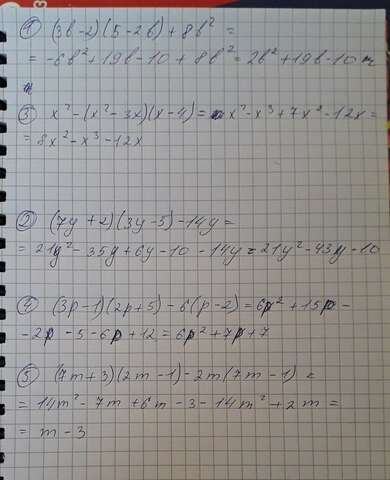 ① (3b-2)(5-2b)+8b² =
= -6b²+19b-10+8b²=2b²+19b-10
③ x²-(x²-3x)(x-4)= x²-x³+7x²-12x=
= 8x²-x³-12x
② (7y+2)(3y-5)-14y=
= 21y²-35y+6y-10-14y=21y²-43y-10
④ (3p-1)(2p+5)-6(p-2)=6p²+15p-
-2p-5-6p+12=6p²+7p+7
⑤ (7m+3)(2m-1)-2m(7m-1)=
= 14m²-7m+6m-3-14m²+2m=
= m-3